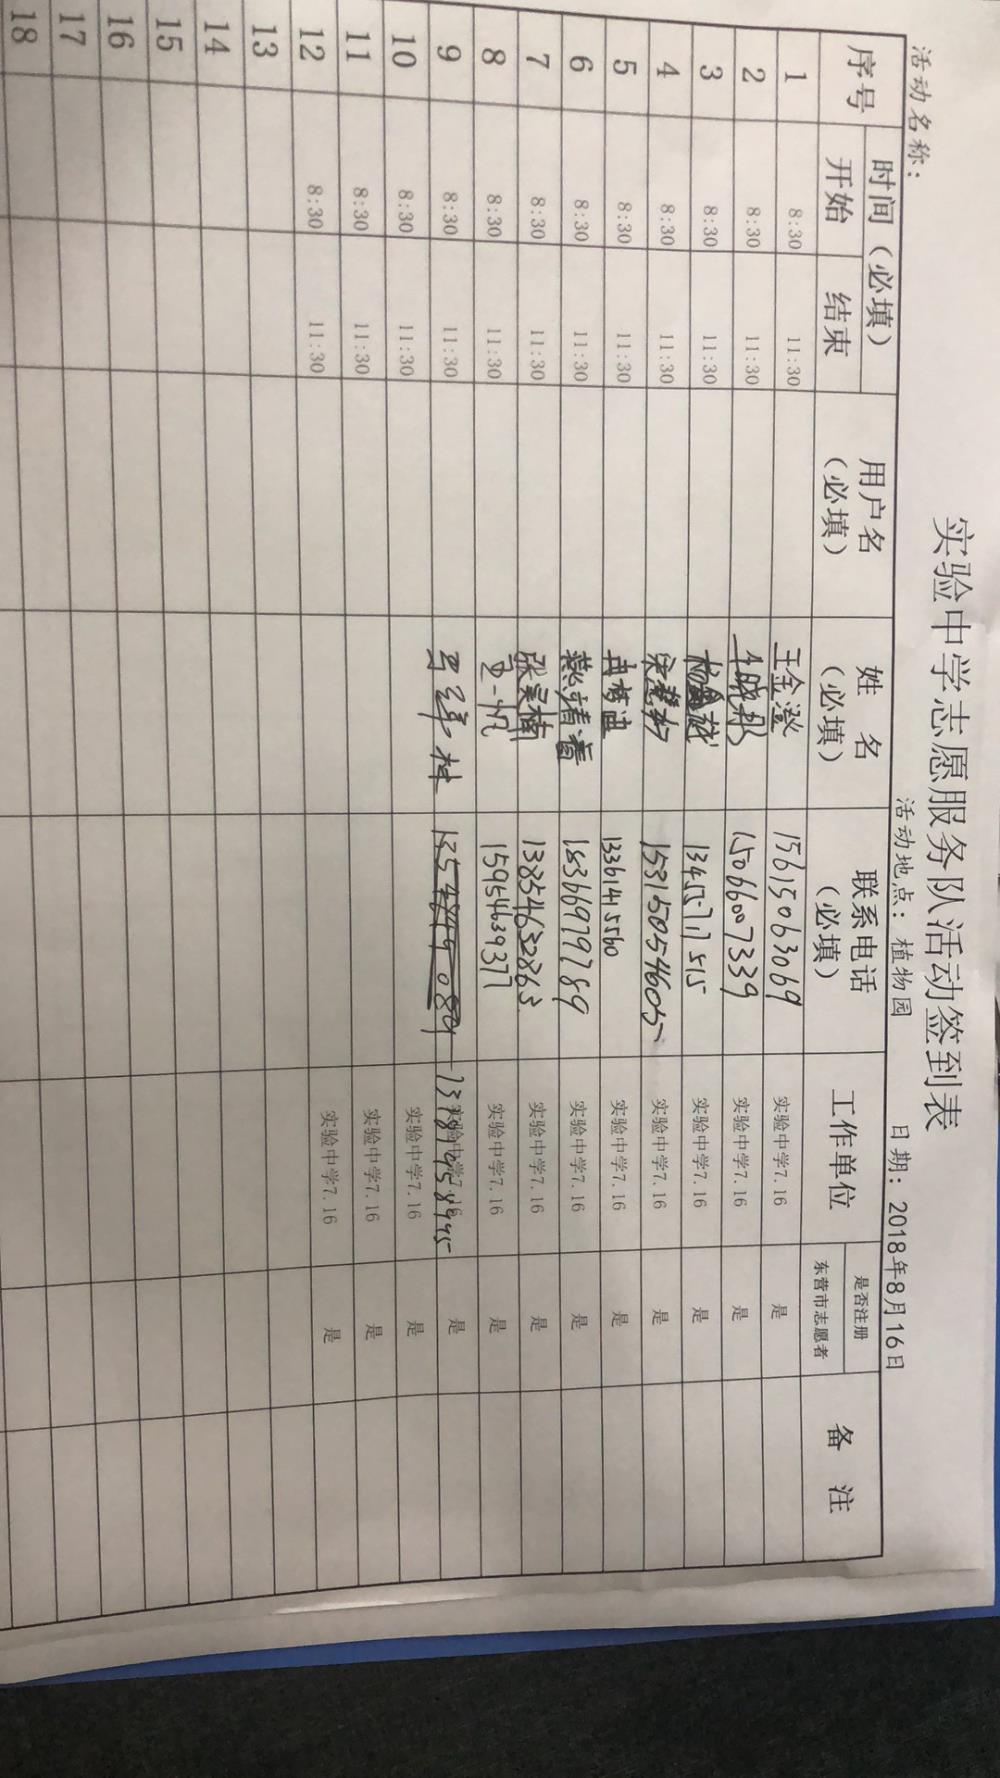 实验中学志愿服务队活动签到表
活动名称： 活动地点：植物园 日期：2018年8月16日
序号 时间（必填） 用户名（必填） 姓 名（必填） 联系电话（必填） 工作单位 是否注册东营市志愿者 备 注
开始 结束
1 8:30 11:30 王金澄 15615063069 实验中学7.16 是
2 8:30 11:30 车晓彤 15066007339 实验中学7.16 是
3 8:30 11:30 13455717515 实验中学7.16 是
4 8:30 11:30 15315054605 实验中学7.16 是
5 8:30 11:30 13361415560 实验中学7.16 是
6 8:30 11:30 18366979789 实验中学7.16 是
7 8:30 11:30 13854632863 实验中学7.16 是
8 8:30 11:30 王一帆 15954639377 实验中学7.16 是
9 8:30 11:30 是
10 8:30 11:30 实验中学7.16 是
11 8:30 11:30 实验中学7.16 是
12 8:30 11:30 实验中学7.16 是
13
14
15
16
17
18